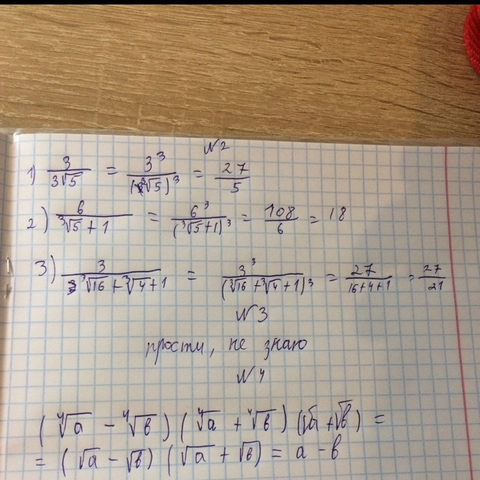 №2
1) 3/∛5 = 3³/(∛5)³ = 27/5
2) 6/(∛5+1) = 6³/(∛5+1)³ = 108/6 = 18
3) 3/(∛16+∛4+1) = 3³/(∛16+∛4+1)³ = 27/(16+4+1) = 27/21
№3
прости, не знаю
№4
(∜a - ∜b)(∜a + ∜b)(√a+√b) =
= (√a - √b)(√a + √b) = a - b